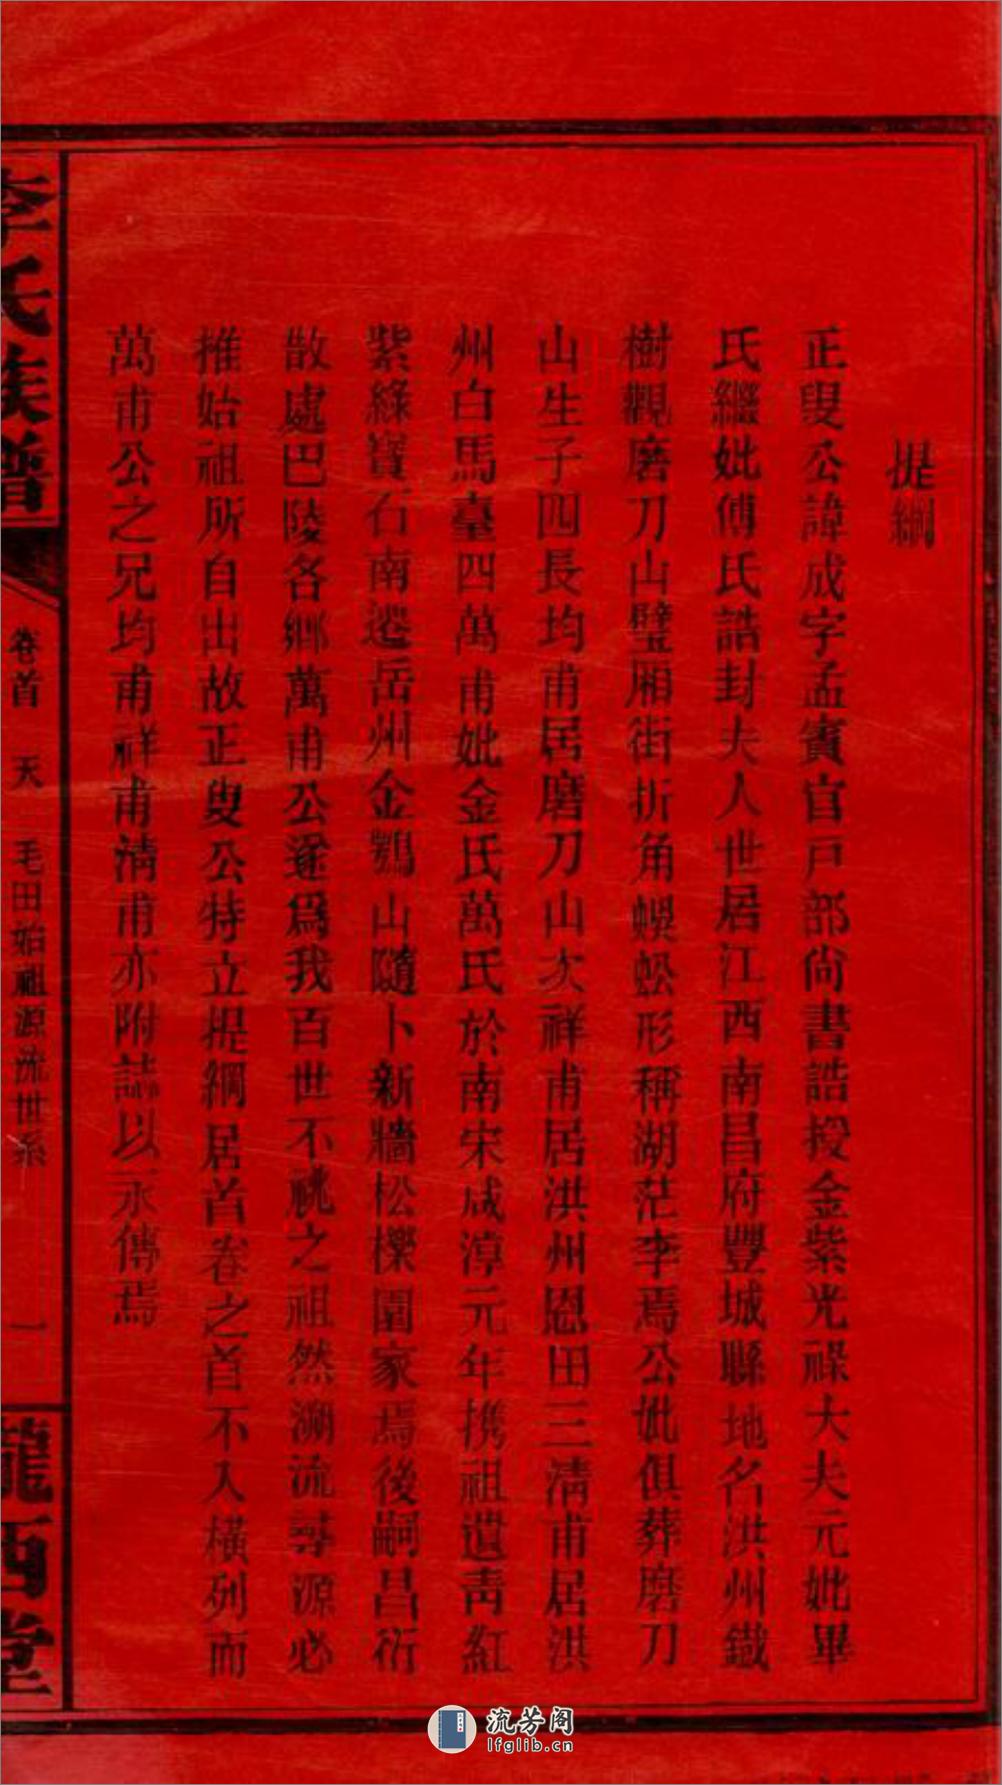 提綱
正叟公諱成字孟賓官戸部尙書誥授金紫光祿大夫元妣畢
氏繼妣傅氏誥封夫人世居江西南昌府豐城縣地名洪州鐵
樹觀磨刀山璧厢街折角蜈蚣形稱湖茫李焉公妣俱葬磨刀
山生子四長均甫居磨刀山次祥甫居洪州恩田三淸甫居洪
州白馬臺四萬甫妣金氏萬氏於南宋咸淳元年携祖遺靑紅
紫綠寶石南遷岳州金鶚山隨卜新牆松櫟園家焉後嗣昌衍
散處巴陵各鄉萬甫公遂爲我百世不祧之祖然溯流尋源必
推始祖所自出故正叟公特立提綱居首卷之首不入橫列而
萬甫公之兄均甫祥甫淸甫亦附誌以永傳焉
李氏族譜
卷首 天 毛田始祖源流世系
一
隴西堂
流芳阁
lfglib.cn